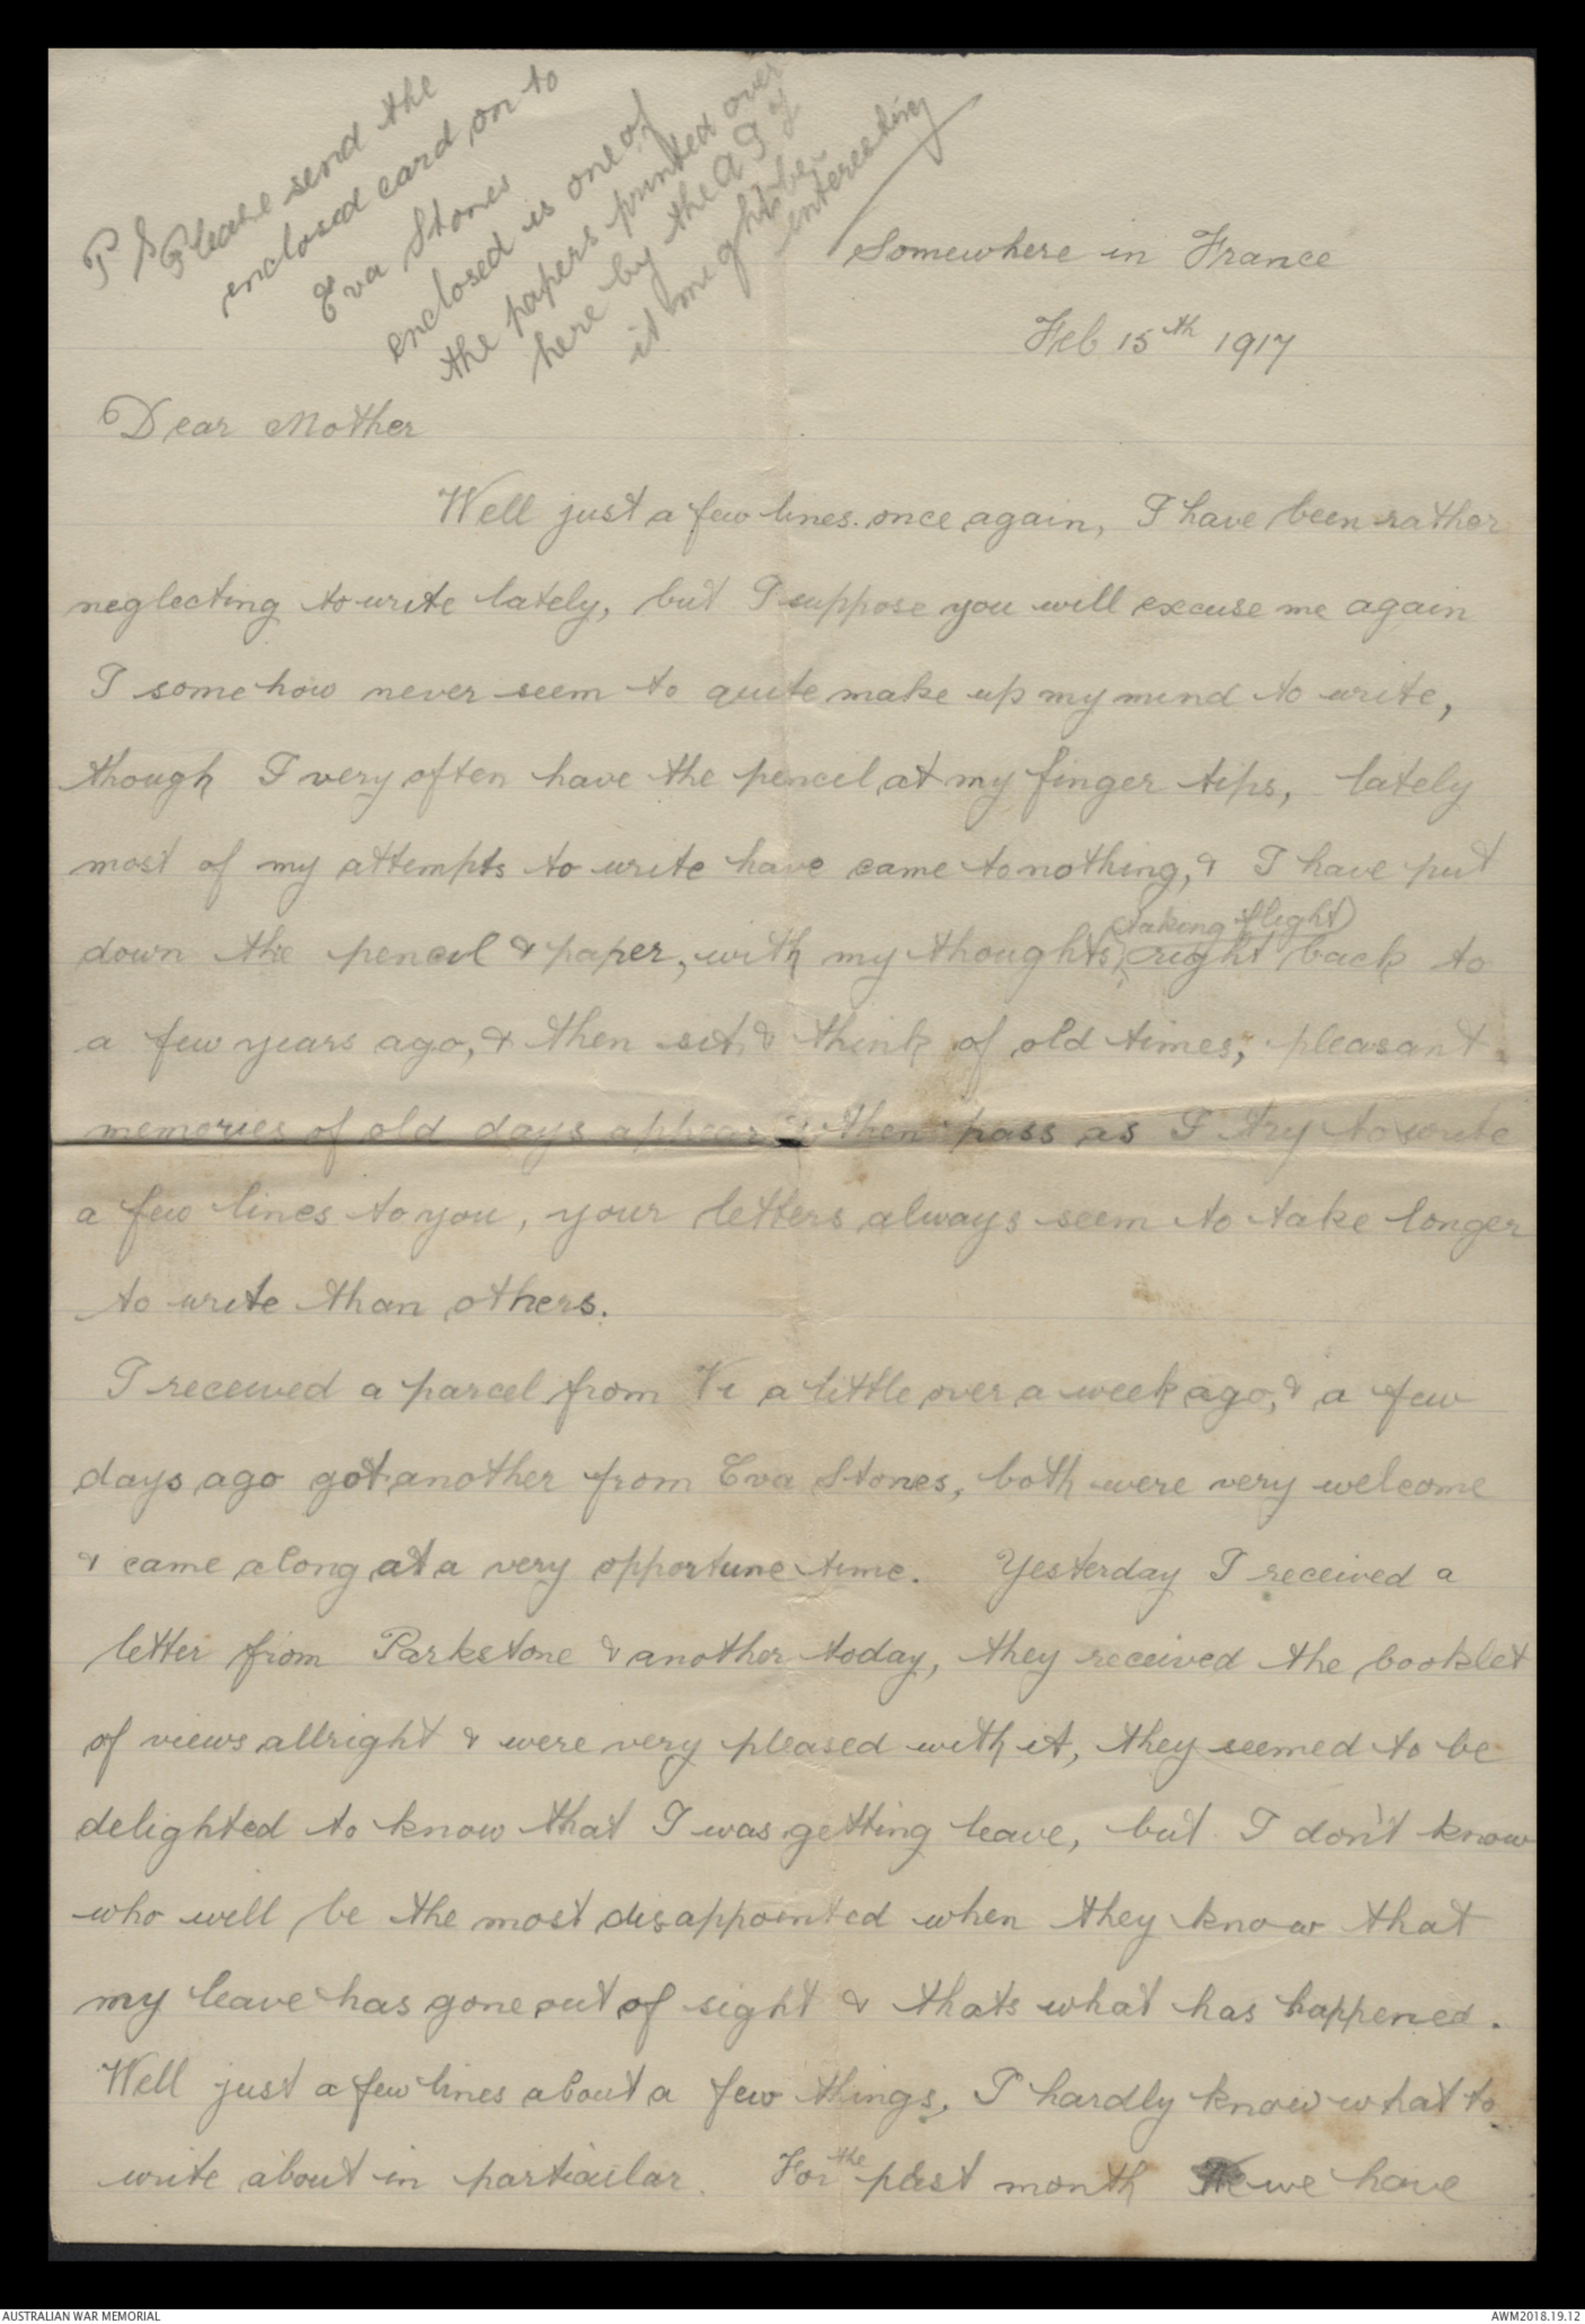 P S Please send the
enclosed card on to
Eva Stones
enclosed is one of
the papers printed over
here by the A G
it might be
interesting
Somewhere in France
Feb 15th 1917
Dear Mother
Well just a few lines. once again, I have been rather
neglecting to write lately, but I suppose you will excuse me again
I somehow never seem to quite make up my mind to write,
though I very often have the pencil at my finger tips, lately
most of my attempts to write have came to nothing, & I have put
down the pencil & paper, with my thoughts (taking flight) right back to
a few years ago, & then sit & think of old times, pleasant
memories of old days appear & then pass as I try to write
a few lines to you, your letters always seem to take longer
to write than others.
I received a parcel from Vi a little over a week ago, & a few
days ago got another from Eva Stones, both were very welcome
& came along at a very opportune time. Yesterday I received a
letter from Parkstone & another today, they received the booklet
of views allright & were very pleased with it, they seemed to be
delighted to know that I was getting leave, but I don't know
who will be the most disappointed when they know that
my leave has gone out of sight & thats what has happened.
Well just a few lines about a few things, I hardly know what to
write about in particular. For the past month we have
AUSTRALIAN WAR MEMORIAL
AWM2018.19.12